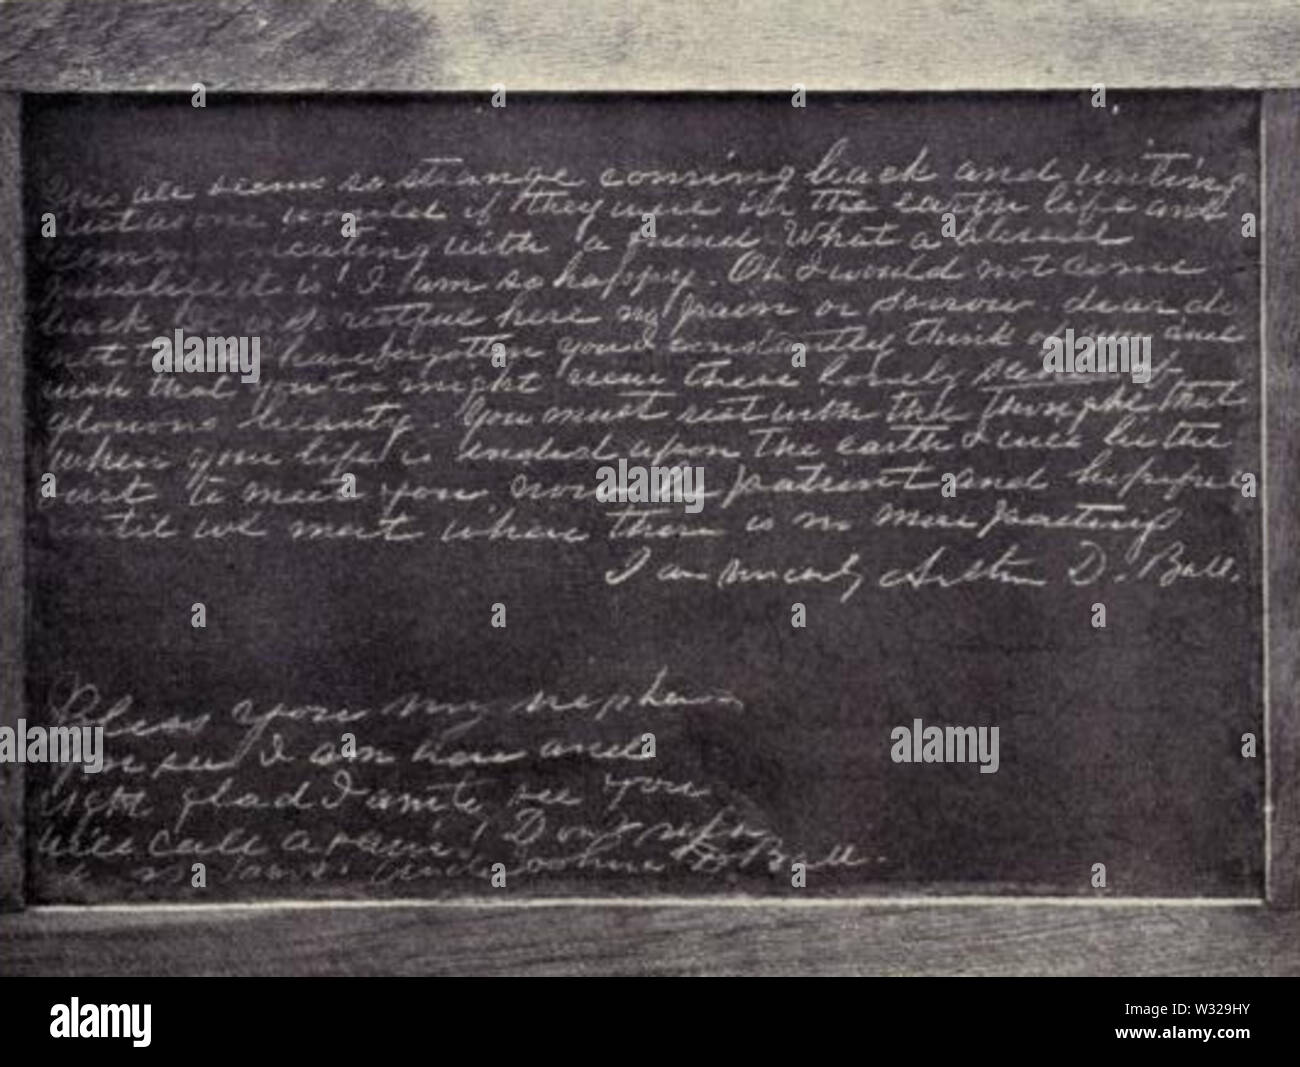 all seem so strange coming back and writing
just as one would if they were in the earth life and
communicating with a friend. What a blessed
privilege it is! I am so happy. Oh I would not come
back here no pain or sorrow dear do
not think I have forgotten you I constantly think of you and
wish that you too might view these lovely scenes of
glorious beauty. You must rest with the thought that
when your life is ended upon the earth I will be the
first to meet you now be patient and hopeful
until we meet where there is no more parting
I am sincerely D. Ball.
Bless you my nephew
You see I am here and
right glad I am to see you
Will call again! Don't
D Ball.
alamy
Image ID: W329HY
www.alamy.com